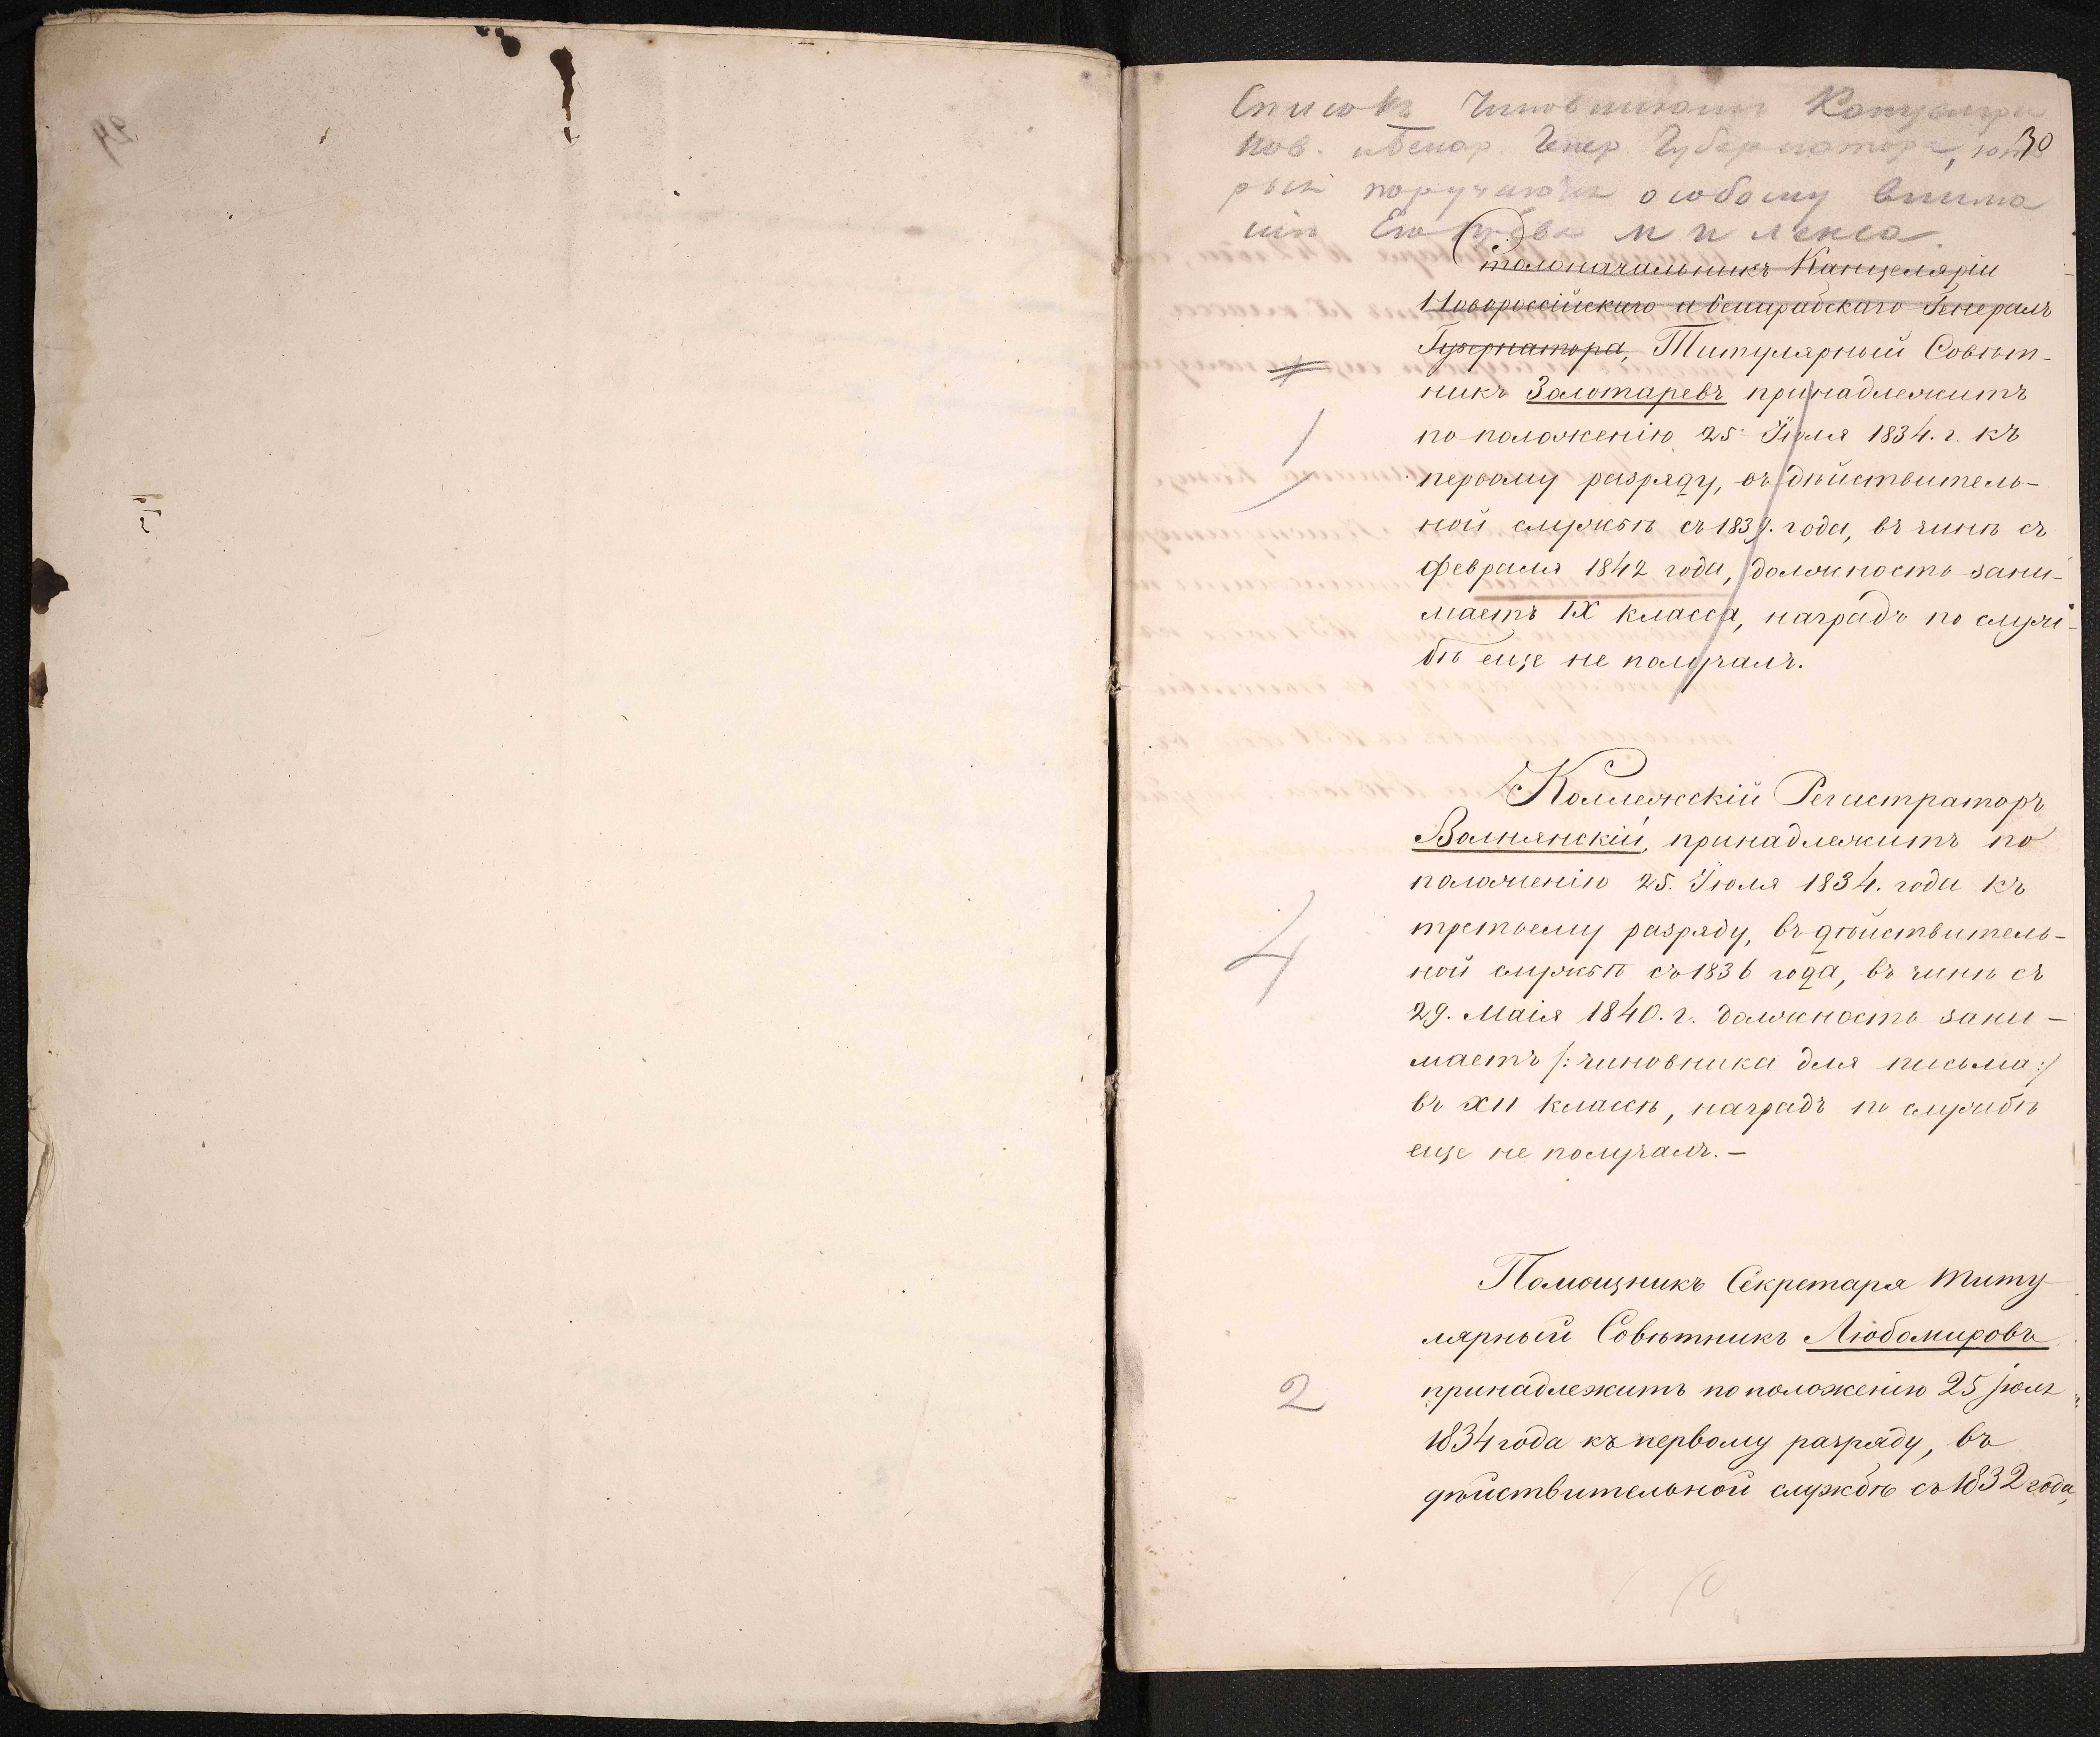 29
30
Списокъ Чиновникамъ Канцеляри
Нов. и Бессар. Генер. Губернатора, кото
рые поручаются особому внима
нію Его
Столоначальникъ Канцеляріи
Новороссійскаго и Бессарабскаго Генералъ
Губернатора, Титулярный Совѣт-
никъ Золотаревъ принадлежитъ
по положенію 25 Іюля 1834. г. къ
первому разряду, въ дѣйствитель-
ной службѣ съ 1839. года, въ чинѣ съ
февраля 1842 года, должность зани-
маетъ IX класса, наградъ по служ-
бѣ еще не получалъ.
1
Коллежскій Регистраторъ
Волнянскій, принадлежитъ по
положенію 25. Іюля 1834. года къ
третьему разряду, въ дѣйствитель-
ной службѣ съ 1836 года, въ чинѣ съ
29. Маія 1840. г. должность зани-
маетъ /: чиновника для письма :/
въ XII классѣ, наградъ по службѣ
еще не получалъ. —
4
Помощникъ Секретаря Титу
лярный Совѣтникъ Любомировъ
принадлежитъ по положенію 25 іюля
1834 года къ первому разряду, въ
дѣйствительной службѣ съ 1832 года,
2